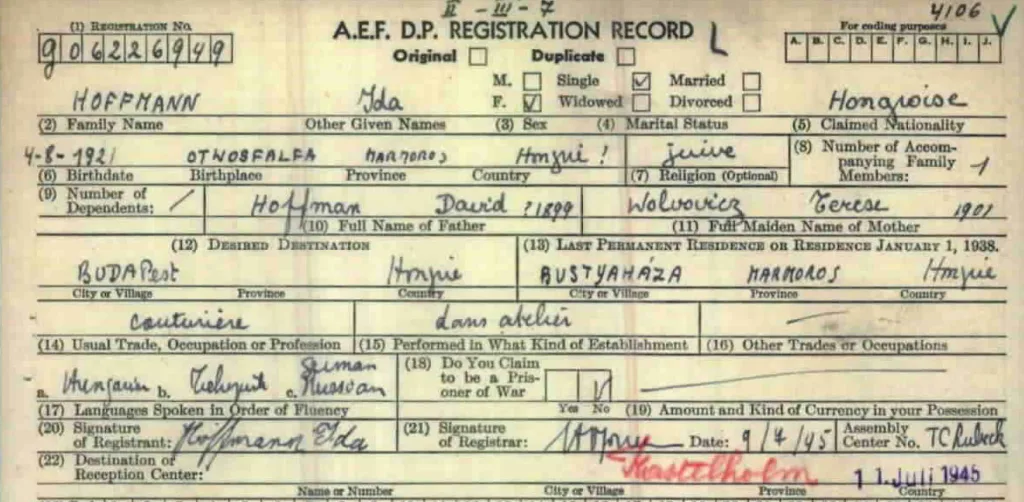 II - III - 7
4106
(1) REGISTRATION NO.
G06226949
A.E.F. D.P. REGISTRATION RECORD
For coding purposes
A. B. C. D. E. F. G. H. I. J.
Original Duplicate
M. Single Married
HOFFMANN Ida F. Widowed Divorced Hongroise
(2) Family Name Other Given Names (3) Sex (4) Marital Status (5) Claimed Nationality
4-8-1921 OTWOSFALFA MARMOROS Hongrie ! juive (8) Number of Accompanying Family Members: 1
(6) Birthdate Birthplace Province Country (7) Religion (Optional)
(9) Number of Dependents: / Hoffman David ?1899 Wolvovicz Terese 1901
(10) Full Name of Father (11) Full Maiden Name of Mother
(12) DESIRED DESTINATION (13) LAST PERMANENT RESIDENCE OR RESIDENCE JANUARY 1, 1938.
BUDAPest Hongrie BUSTYAHÁZA MARMOROS Hongrie
City or Village Province Country City or Village Province Country
couturière dans atelier
(14) Usual Trade, Occupation or Profession (15) Performed in What Kind of Establishment (16) Other Trades or Occupations
a. b. c. German Russian (18) Do You Claim to be a Prisoner of War
Yes No
(17) Languages Spoken in Order of Fluency (19) Amount and Kind of Currency in your Possession
(20) Signature of Registrant: Hoffmann Ida (21) Signature of Registrar: Date: 9/7/45 Assembly Center No. TC Lubeck
(22) Destination or Reception Center: Kastelholm 11. Juli 1945
Name or Number City or Village Province Country